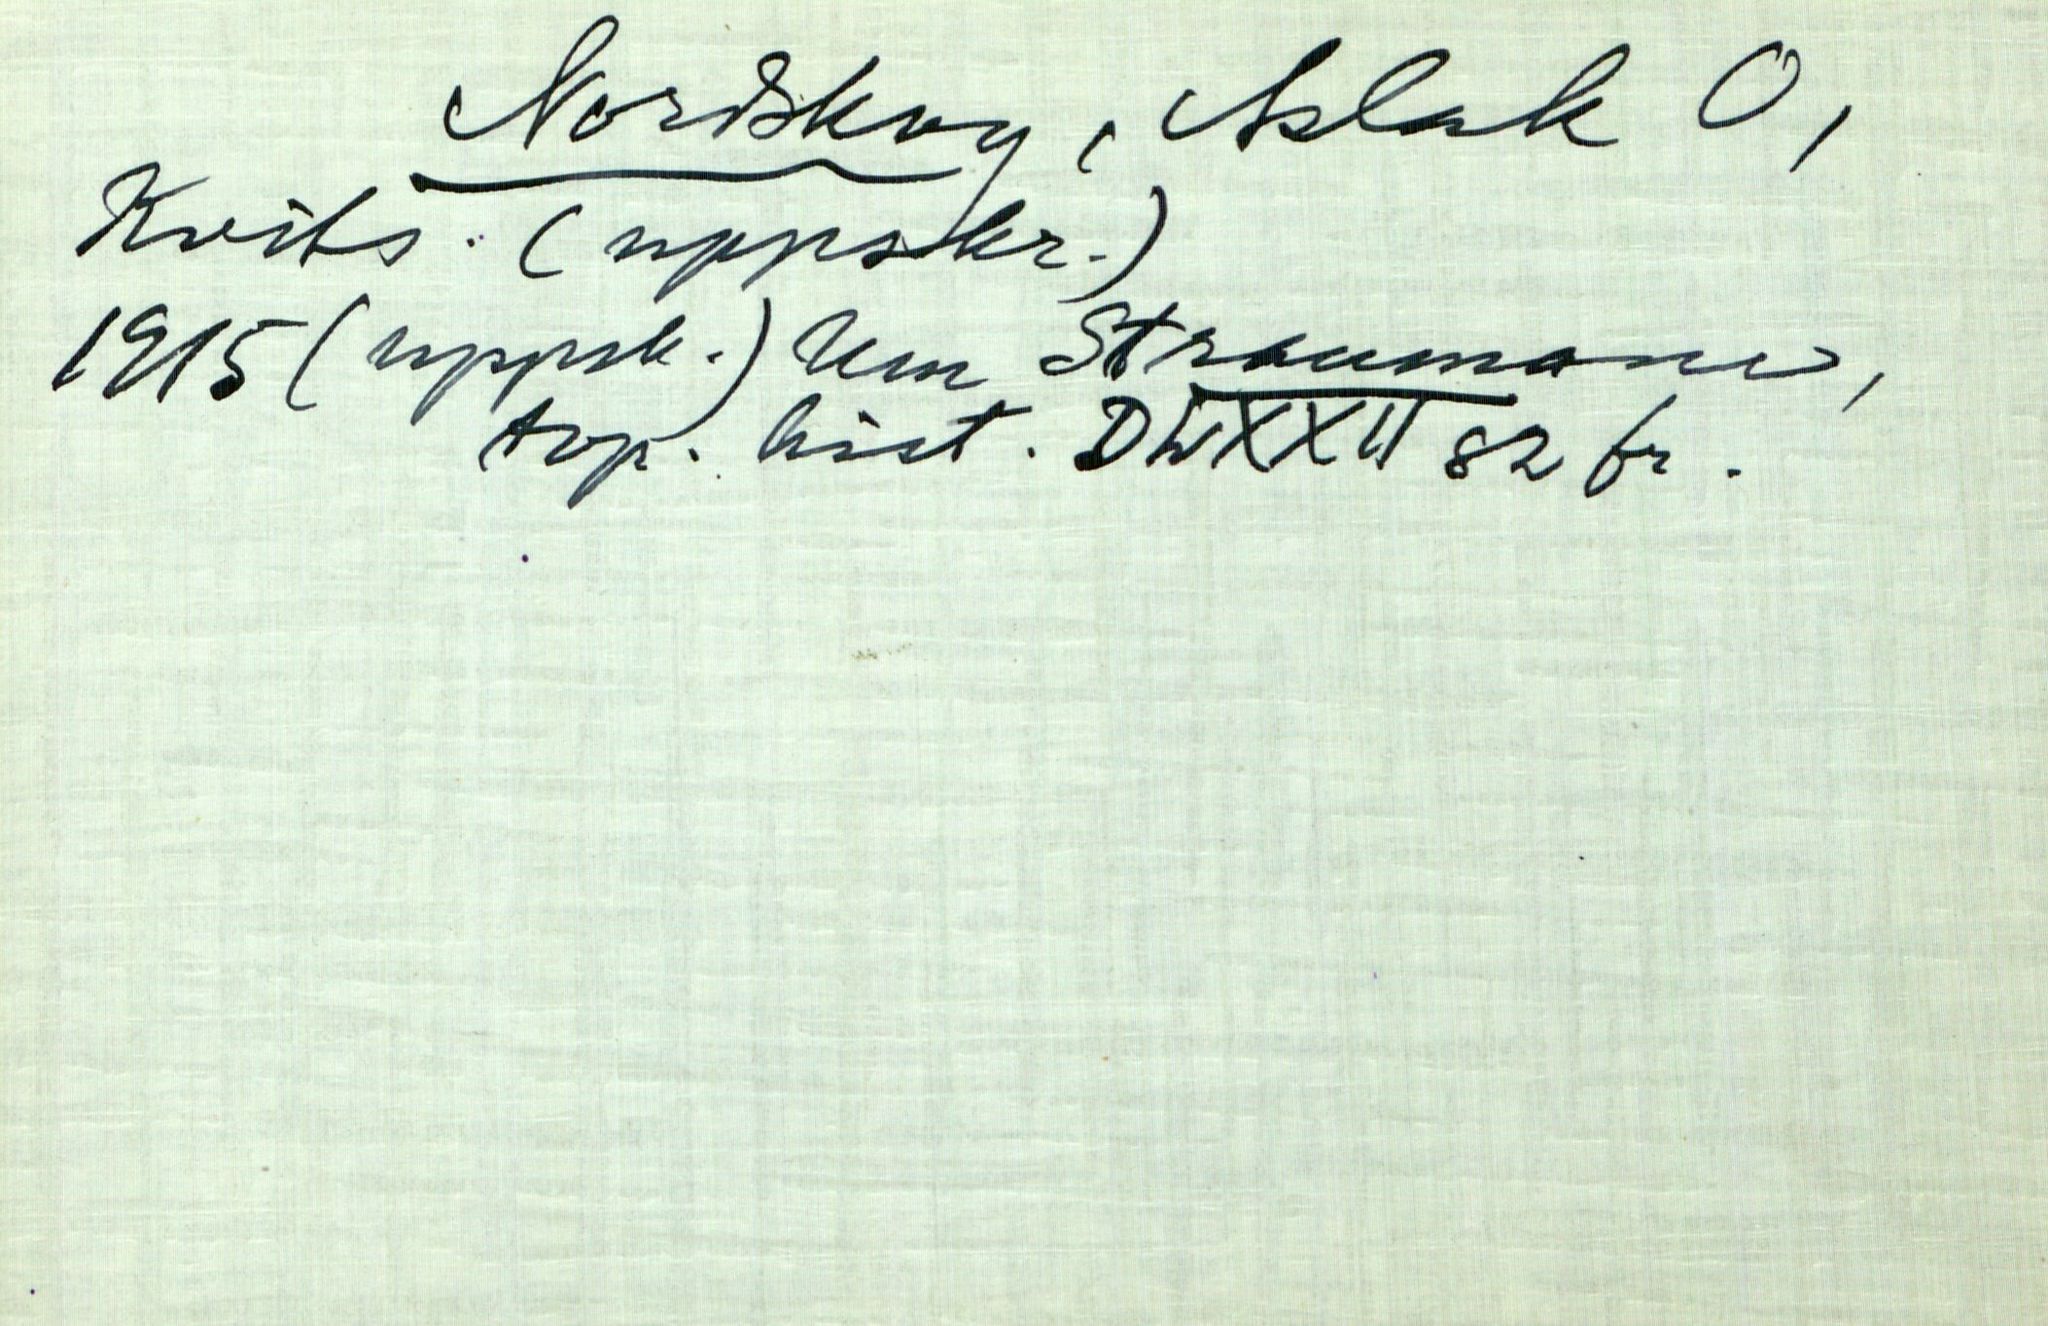 Nordskog, Aslak O,
Kvits. (uppskr.)
1915 (uppsk.) Um Straumane,
top. hist. DLXXII 82 fr.